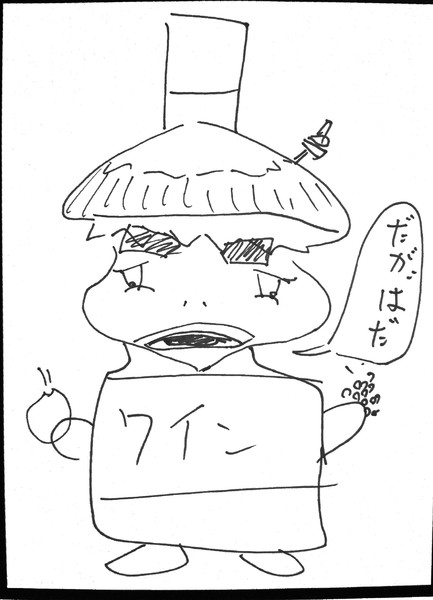 だがはだ
ワイン